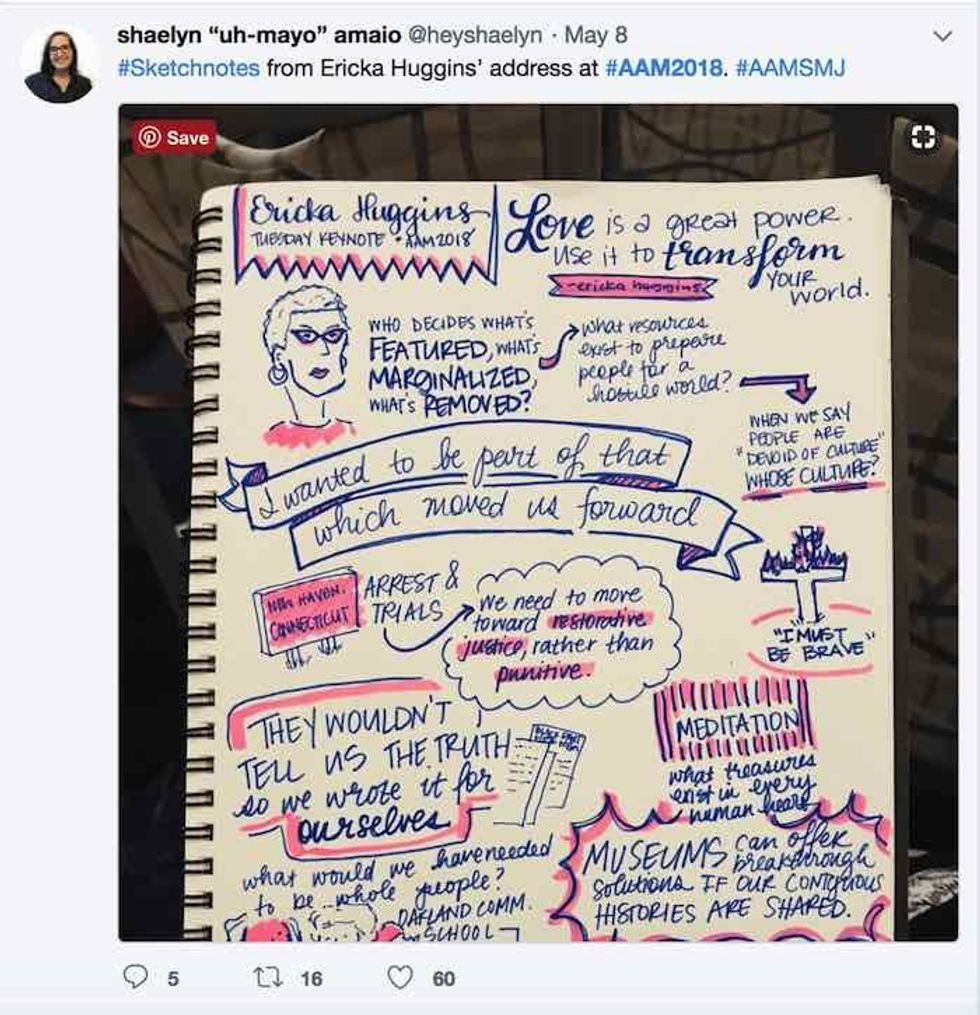 shaelyn “uh-mayo” amaio @heyshaelyn · May 8
#Sketchnotes from Ericka Huggins’ address at #AAM2018. #AAMSMJ
Save
Ericka Huggins
TUESDAY KEYNOTE • AAM2018
Love is a great power.
use it to transform
YOUR
world.
-ericka huggins
WHO DECIDES WHAT'S
FEATURED, WHAT'S
MARGINALIZED,
WHAT'S REMOVED?
what resources
exist to prepare
people for a
hostile world?
WHEN WE SAY
PEOPLE ARE
"DEVOID OF CULTURE"
WHOSE CULTURE?
I wanted to be part of that
which moved us forward
NEW HAVEN,
CONNECTICUT
ARREST &
TRIALS
We need to move
toward restorative
justice, rather than
punitive.
"I MUST
BE BRAVE"
THEY WOULDN'T
TELL US THE TRUTH
so we wrote it for
ourselves
MEDITATION
what treasures
exist in every
human heart
what would we have needed
to be whole people?
OAKLAND COMM.
SCHOOL
MUSEUMS can offer
breakthrough
solutions IF OUR CONTIGUOUS
HISTORIES ARE SHARED.
5 16 60